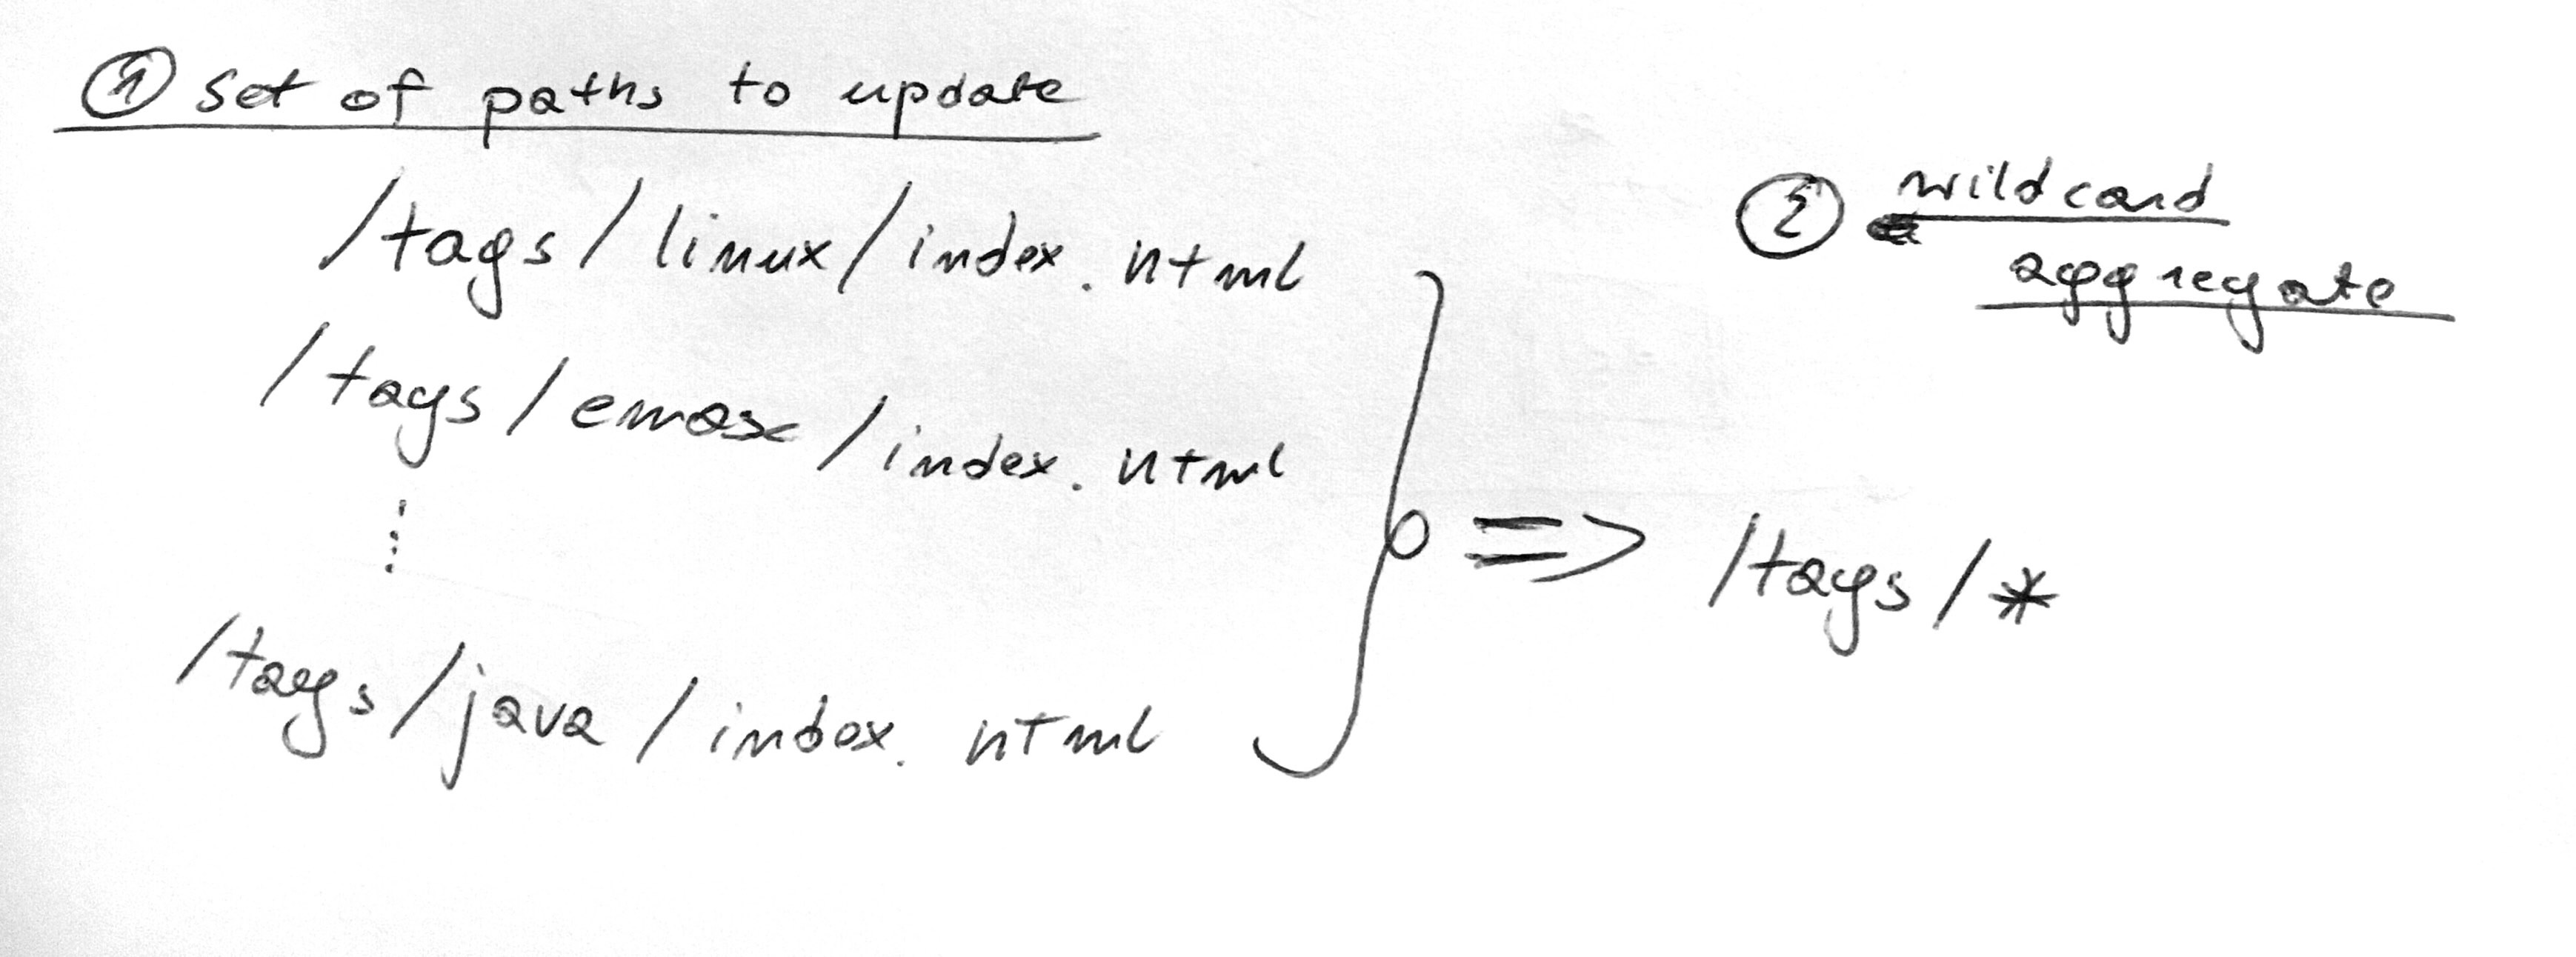 ① set of paths to update
/tags/linux/index.html
/tags/emasc/index.html
⋮
/tags/java/index.html
② wildcard
aggregate
=> /tags/*